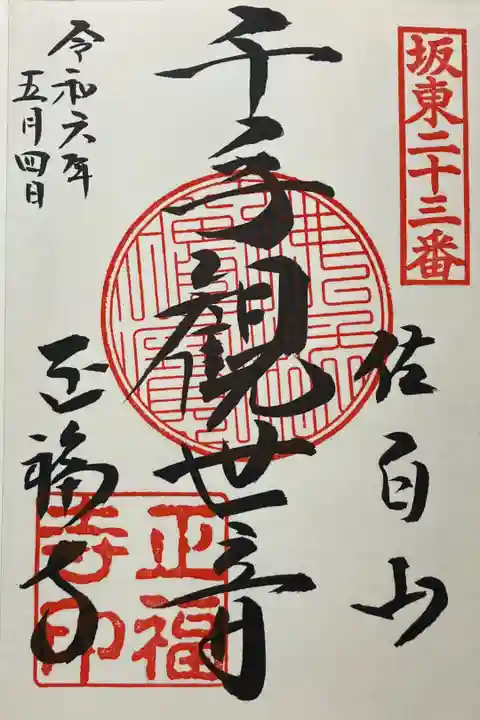 坂東二十三番
佐白山
千手観世音
令和六年
五月四日
正福寺
正福
寺印